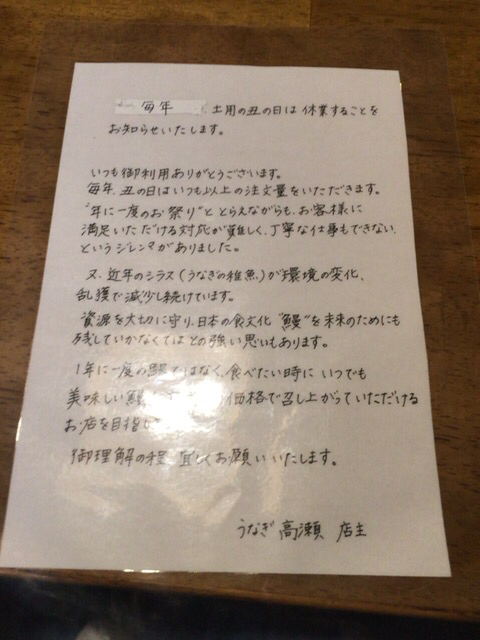 毎年 土用の丑の日は休業することを
お知らせいたします。
いつも御利用ありがとうございます。
毎年、丑の日はいつも以上の注文量をいただきます。
"年に一度のお祭り"ととらえながらも、お客様に
満足いただける対応が難しく、丁寧な仕事もできない、
というジレンマがありました。
又、近年のシラス(うなぎの稚魚)が環境の変化、
乱獲で減少し続けています。
資源を大切に守り、日本の食文化"鰻"を未来のためにも
残していかなくてはとの強い思いもあります。
1年に一度の鰻ではなく、食べたい時にいつでも
美味しい鰻 価格で召し上がっていただける
お店を目指し
御理解の程、宜しくお願いいたします。
うなぎ 高瀬 店主